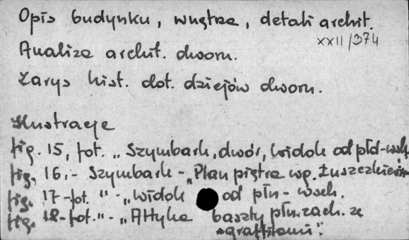 Opis budynku, wnętrza, detali archit.
XXII/374
Analiza archit. dworu.
Zarys hist. dot. dziejów dworu.
Ilustracje
fig. 15, fot. „Szymbark, dwór, widok od płd-wsch.
fig. 16, - Szymbark - „Plan piętra wg. Łuszczkiewicza
fig. 17 - fot. " - „Widok od płn - wsch.
fig. 18 - fot. " - „Attyka baszty płn.zach. ze
sgraffitami".